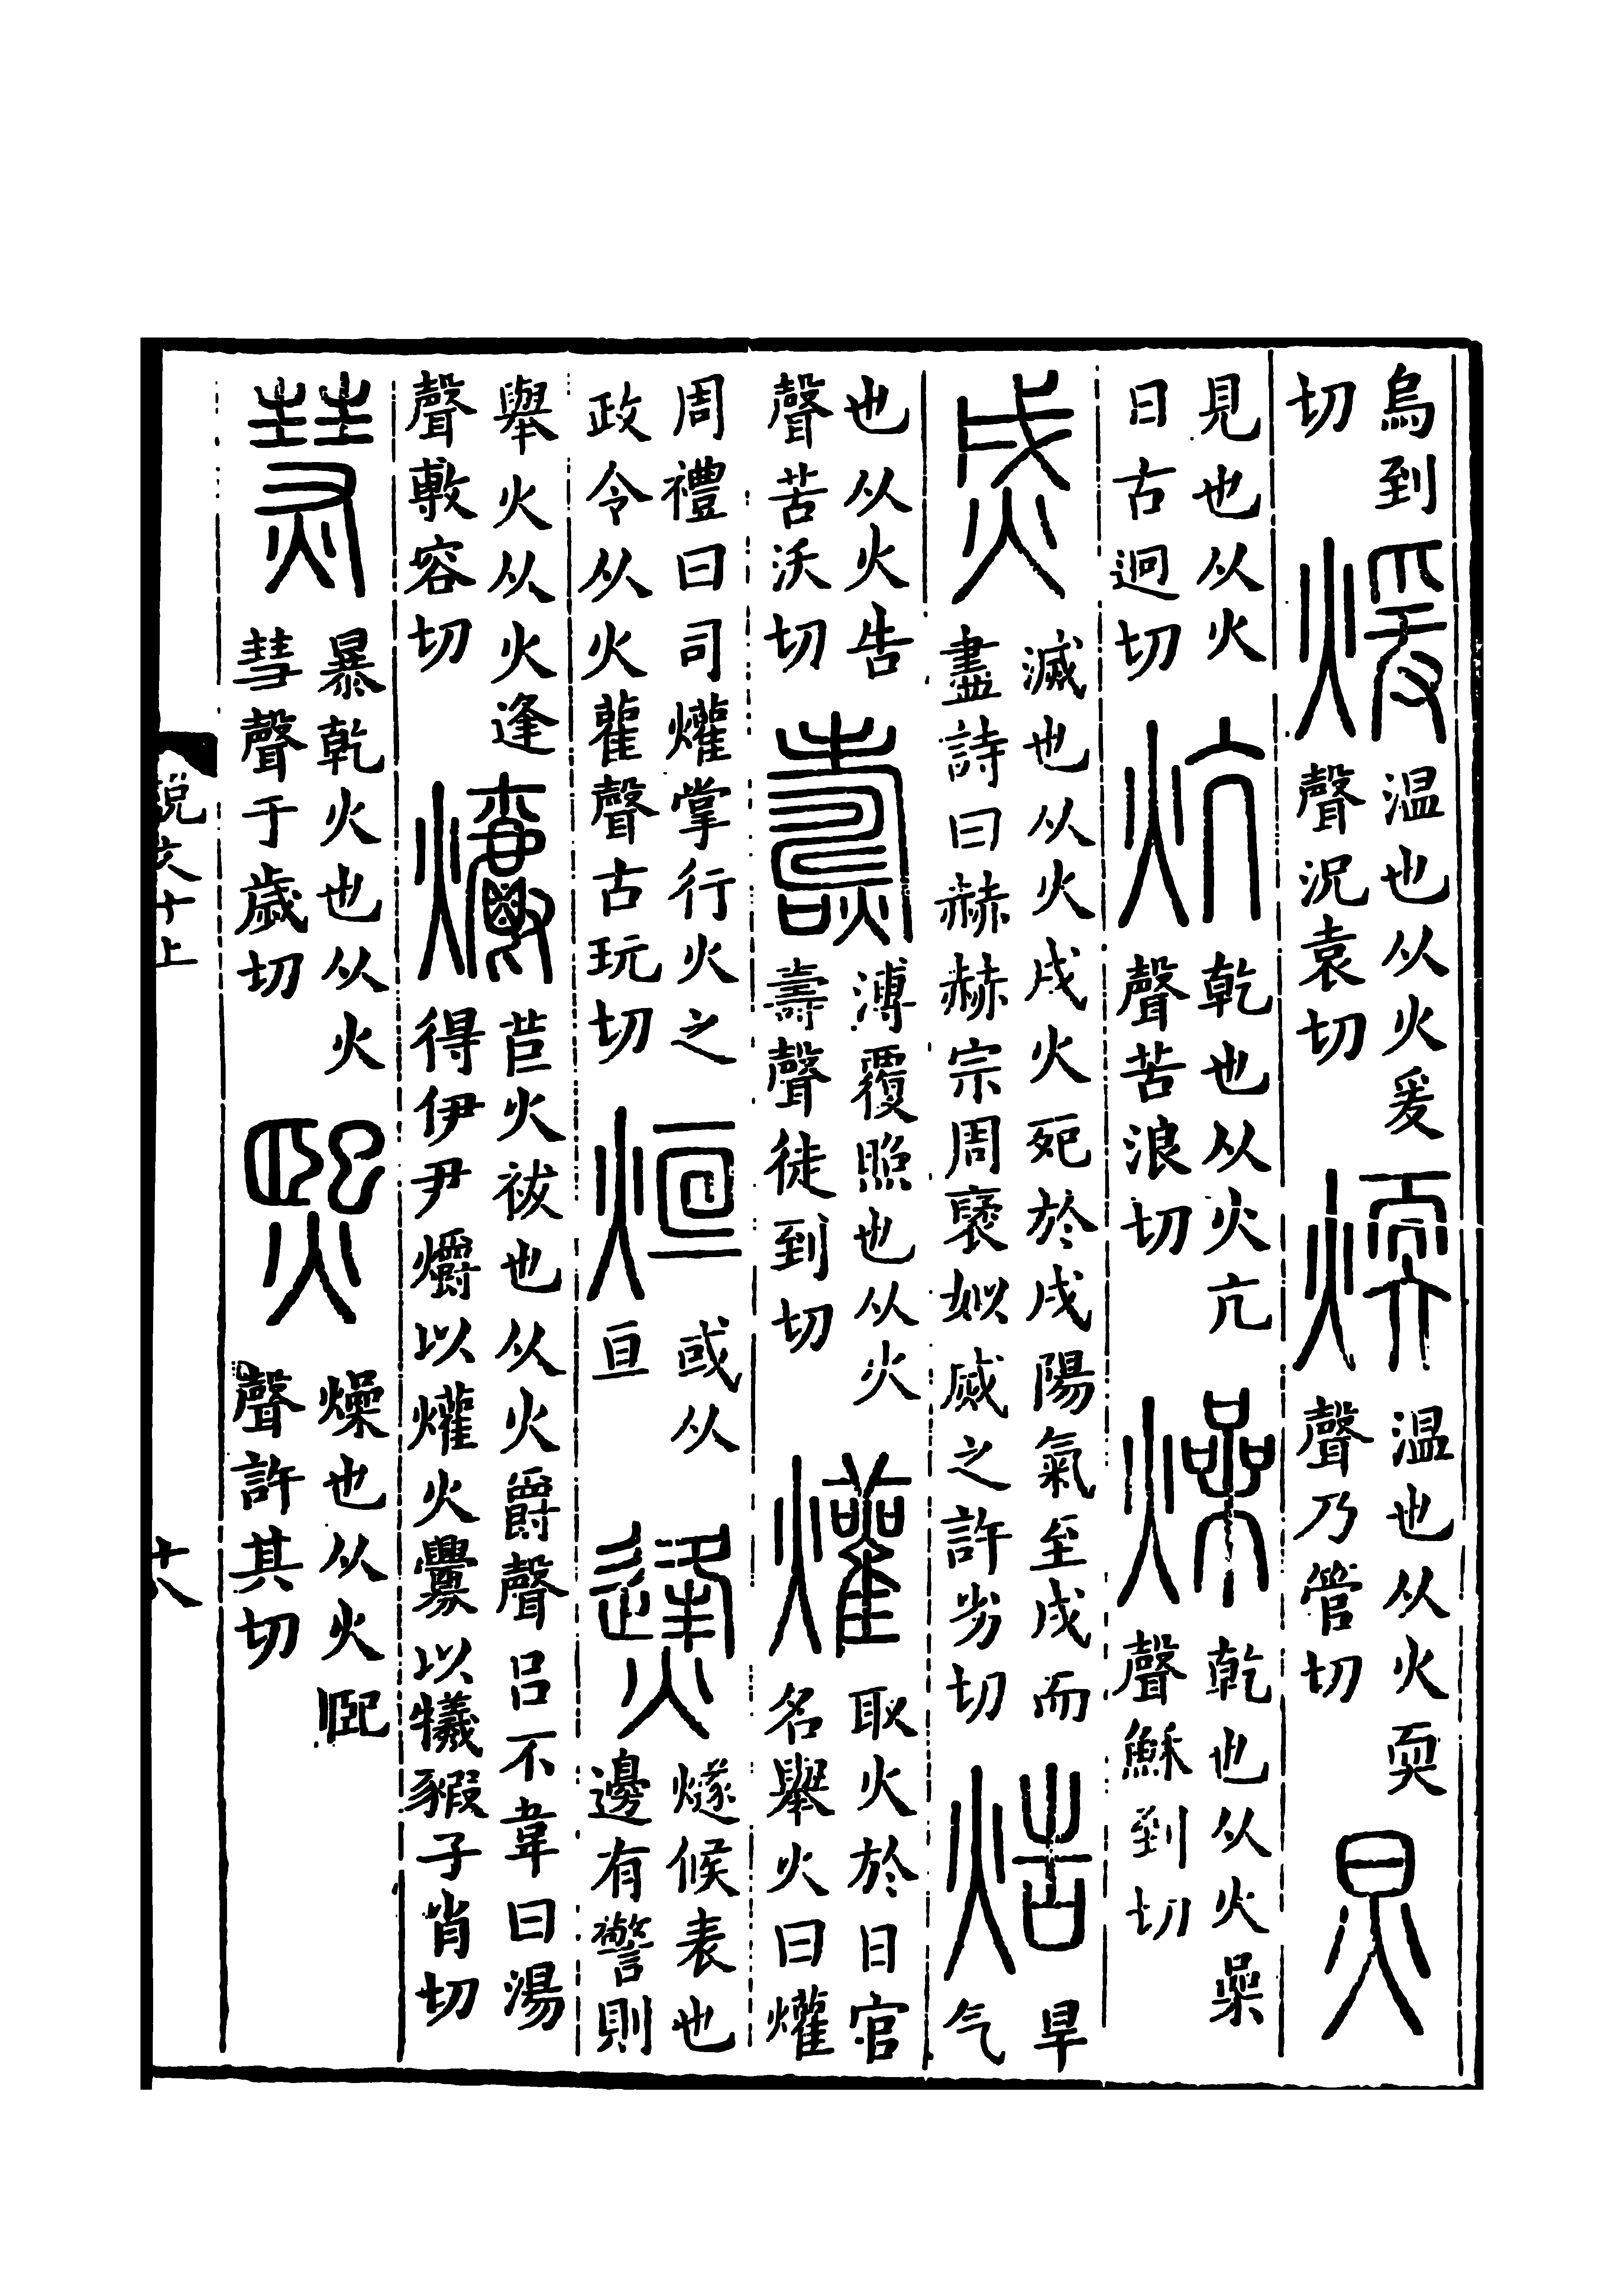 烏到切煖温也从火爰聲況袁切煗温也从火耎聲乃管切炅
見也从火日古迥切炕乾也从火亢聲苦浪切燥乾也从火喿聲穌到切
烕滅也从火戌火死於戌陽氣至戌而盡詩曰赫赫宗周褒姒烕之許劣切焅旱气
也从火告聲苦沃切燾溥覆照也从火壽聲徒到切爟取火於日官名舉火曰爟
周禮曰司爟掌行火之政令从火雚聲古玩切烜或从亘㷭燧候表也邊有警則
舉火从火逢聲敷容切爝苣火祓也从火爵聲呂不韋曰湯得伊尹爝以爟火釁以犧豭子肖切
㷸暴乾火也从火彗聲于歲切熙燥也从火巸聲許其切
說文十上 十八